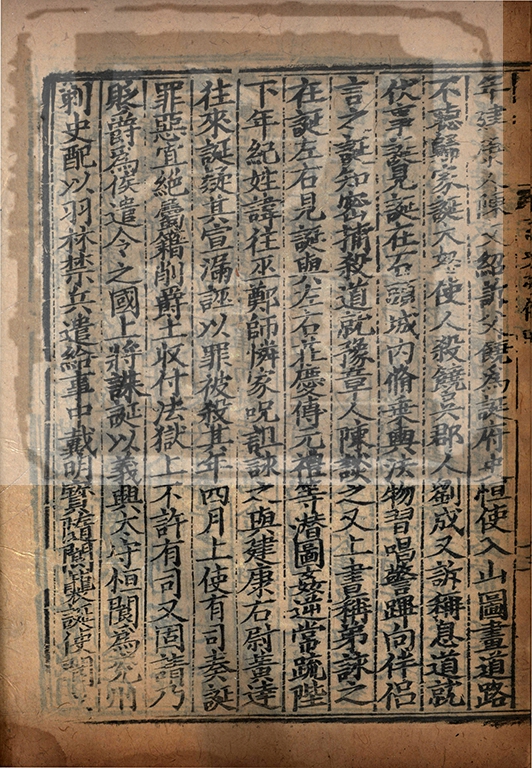 年建康人陳文紹訴父饒為誕府史恒使入山圖畫道路
不聽歸家誕大怒使人殺饒吳郡人劉成又訴稱息道就
伏事誕見誕在石頭城內脩乗輿法物習唱警蹕向伴侶
言之誕知密捕殺道就豫章人陳談之又上書稱弟詠之
在誕左右見誕與左右莊慶傅元禮等潛圖姦逆常疏陛
下年紀姓諱往巫鄭師憐家呪詛詠之與建康右尉黃達
往來誕疑其宣漏誣以罪被殺其年四月上使有司奏誕
罪惡宜絕屬籍削爵土收付法獄上不許有司又固請乃
貶爵為侯遣令之國上將誅誕以義興太守恒閬為兖州
刺史配以羽林禁兵遣給事中戴明寶隨閬襲誕使閬